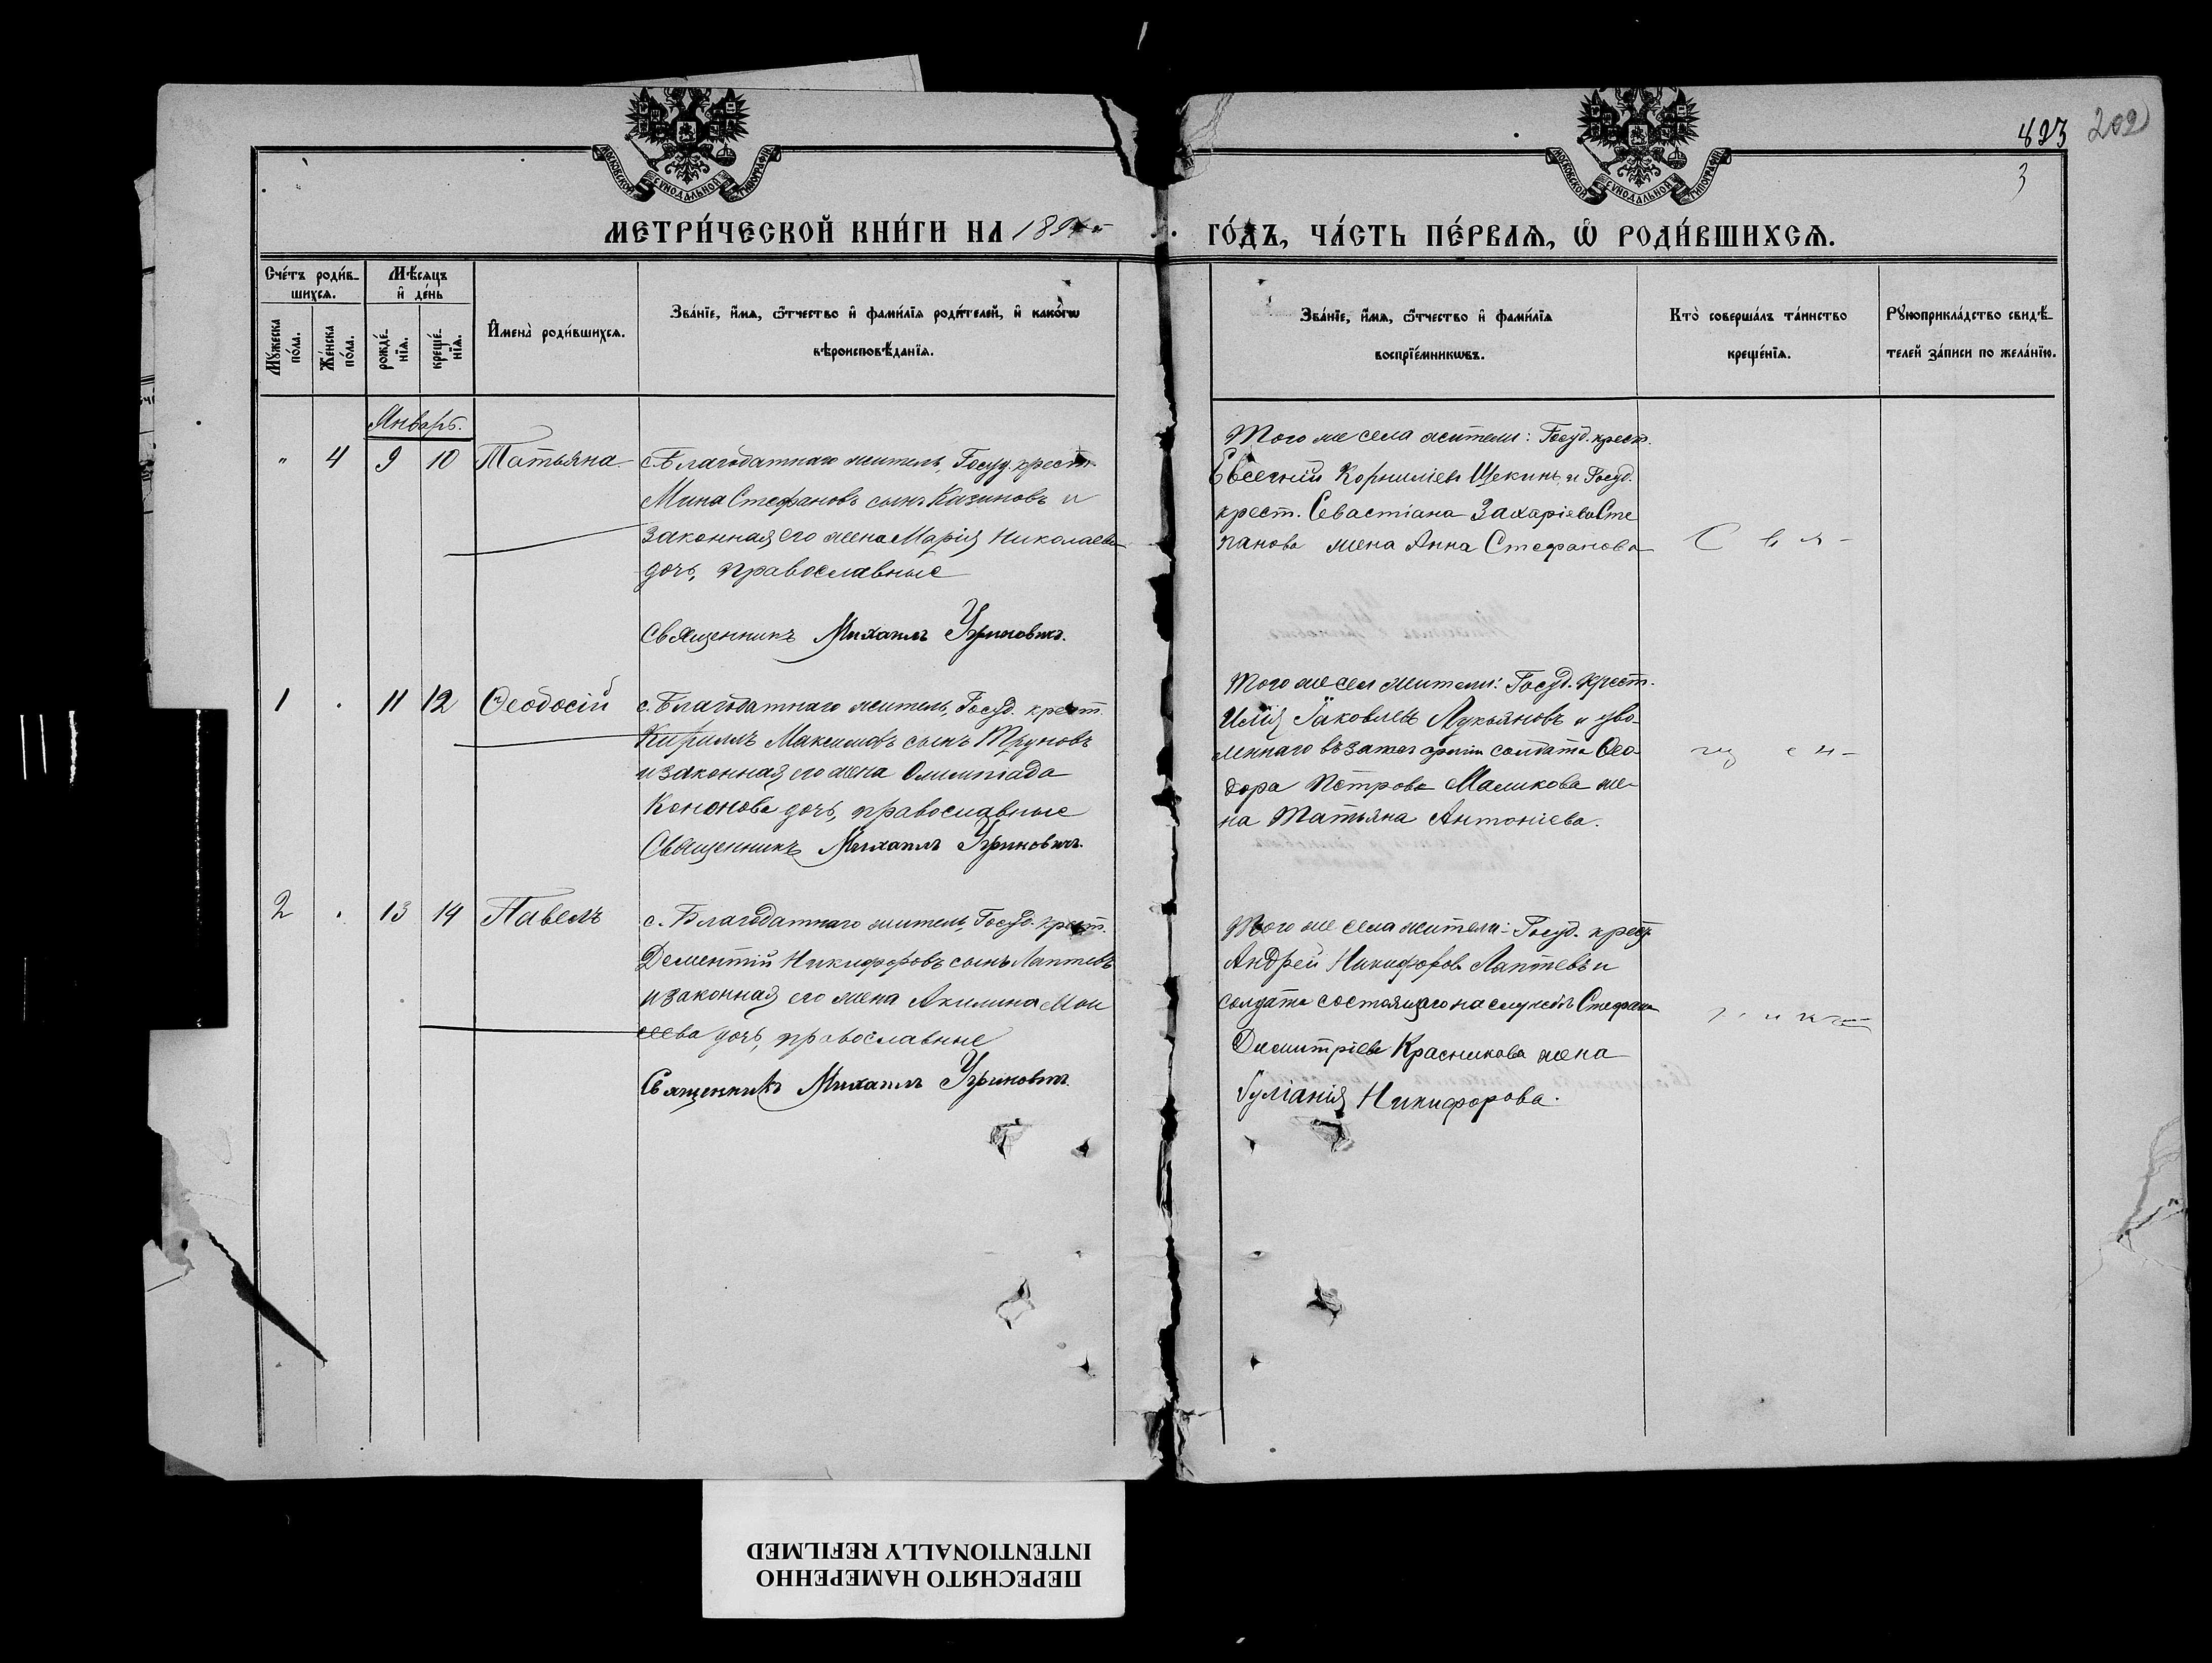 823
202
3
МОСКОВСКОЙ СѴНОДАЛЬНОЙ ТИПОГРАФІИ
МОСКОВСКОЙ СѴНОДАЛЬНОЙ ТИПОГРАФІИ
МЕТРИ́ЧЕСКОЙ КНИ́ГИ НА
ГО́ДЪ, ЧА́СТЬ ПЕ́РВАЯ, Ѡ҆ РОДИ́ВШИХСЯ.
Сче́тъ роди́в-
шихся.
Мѣ́сяцъ
и҆ де́нь
Мꙋ́жеска по́ла.
Же́нска по́ла.
рожде́-нїя.
креще́-нїя.
И҆мена̀ роди́вшихся.
Зва́нїе, и҆́мя, ѻ҆́тчество и҆ фами́лїя роди́телей, и҆ како́гѡ
вѣроисповѣ́данїя.
Зва́нїе, и҆́мя, ѻ҆́тчество и҆ фами́лїя
воспрїе́мникѡвъ.
Кто̀ соверша́лъ та́инство
креще́нїя.
Рꙋкоприкла́дство свидѣ́-
телей за́писи по жела́нїю.
Январь.
" 4 9 10 Татьяна
с. Благодатнаго житель, Госуд. крест.
Мина Стефановъ сынъ Казиновъ и
законная его жена Марія Николаева
дочь, православные
Священникъ Михаилъ Угриновичъ.
Того же села жители: Госуд. крест.
Евсегній Корниліевъ Щекинъ, и Госуд.
крест. Севастіана Захаріева Сте
панова жена Анна Стефанова
С в я -
1 . 11 12 Ѳеодосій
с. Благодатнаго житель, Госуд. крест.
Кириллъ Максимовъ сынъ Труновъ
и законная его жена Олимпіада
Кононова дочь, православные
Священникъ Михаилъ Угриновичъ.
Того же села жители: Госуд. крест.
Илія Іаковлевъ Лукьяновъ и уво-
леннаго въ запас арміи солдата Ѳео-
дора Петрова Маликова же-
на Татьяна Антоніева.
щ е н -
2 . 13 14 Павелъ
с. Благодатнаго житель, Госуд. крест.
Дементій Никифоровъ сынъ Лаптевъ
и законная его жена Акилина Мои
сеева дочь, православные
Священникъ Михаилъ Угриновичъ.
Того же села жители: Госуд. крест.
Андрей Никифоровъ Лаптевъ и
солдата состоящаго на службѣ Стефана
Димитріева Красникова жена
Іуліанія Никифорова.
н и к ъ
ПЕРЕСНЯТО НАМЕРЕННО
INTENTIONALLY REFILMED